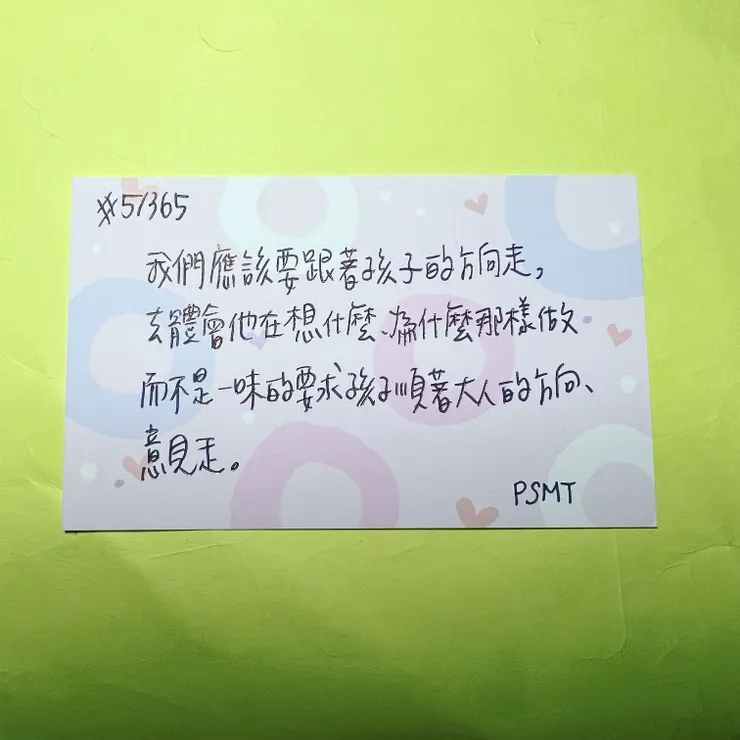 #5/365
我們應該要跟著孩子的方向走,
去體會他在想什麼、為什麼那樣做
而不是一味的要求孩子順著大人的方向、
意見走。
PSMT